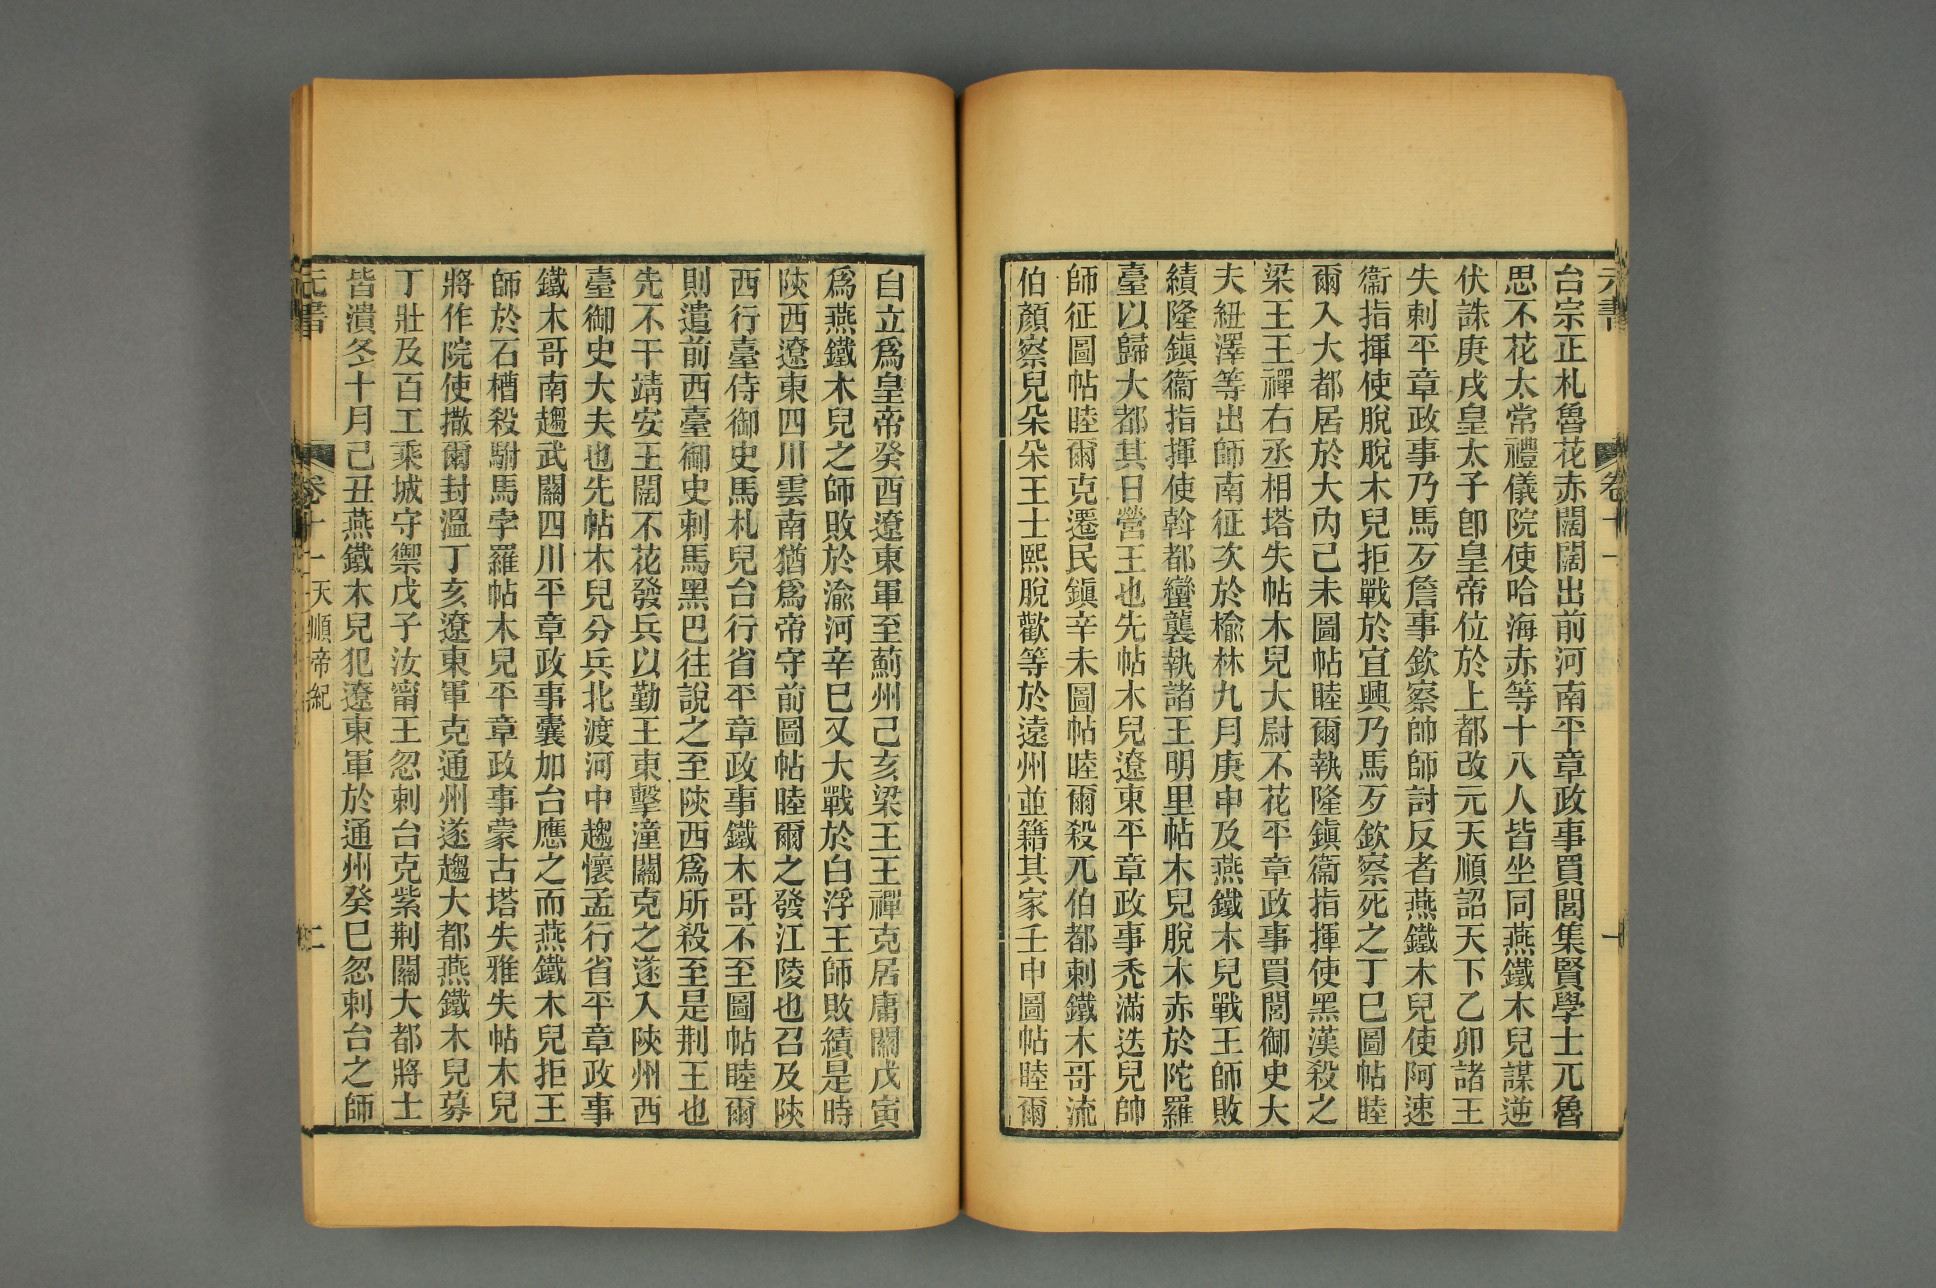 元書
卷十一
一
台宗正札魯花赤闊闊出前河南平章政事買閭集賢學士兀魯
思不花太常禮儀院使哈海赤等十八人皆坐同燕鐵木兒謀逆
伏誅庚戌皇太子卽皇帝位於上都改元天順詔天下乙卯諸王
失剌平章政事乃馬歹詹事欽察帥師討反者燕鐵木兒使阿速
衞指揮使脫脫木兒拒戰於宜興乃馬歹欽察死之丁巳圖帖睦
爾入大都居於大內己未圖帖睦爾執隆鎮衞指揮使黑漢殺之
梁王王禪右丞相塔失帖木兒大尉不花平章政事買閭御史大
夫紐澤等出師南征次於榆林九月庚申及燕鐵木兒戰王師敗
績隆鎮衞指揮使斡都蠻襲執諸王明里帖木兒脫木赤於陀羅
臺以歸大都其日營王也先帖木兒遼東平章政事禿滿迭兒帥
師征圖帖睦爾克遷民鎮辛未圖帖睦爾殺兀伯都剌鐵木哥流
伯顏察兒朵朵王士熙脫歡等於遠州並籍其家壬申圖帖睦爾
自立爲皇帝癸酉遼東軍至薊州己亥梁王王禪克居庸關戊寅
爲燕鐵木兒之師敗於渝河辛巳又大戰於白浮王師敗績是時
陝西遼東四川雲南猶爲帝守前圖帖睦爾之發江陵也召及陝
西行臺侍御史馬札兒台行省平章政事鐵木哥不至圖帖睦爾
則遣前西臺御史剌馬黑巴往說之至陝西爲所殺至是荆王也
先不干靖安王闊不花發兵以勤王東擊潼關克之遂入陝州西
臺御史大夫也先帖木兒分兵北渡河中趨懷孟行省平章政事
鐵木哥南趨武關四川平章政事囊加台應之而燕鐵木兒拒王
師於石槽殺駙馬孛羅帖木兒平章政事蒙古塔失雅失帖木兒
將作院使撒爾封溫丁亥遼東軍克通州遂趨大都燕鐵木兒募
丁壯及百工乘城守禦戊子汝甯王忽剌台克紫荆關大都將士
皆潰冬十月己丑燕鐵木兒犯遼東軍於通州癸巳忽剌台之師
元書
卷十一 天順帝紀
二